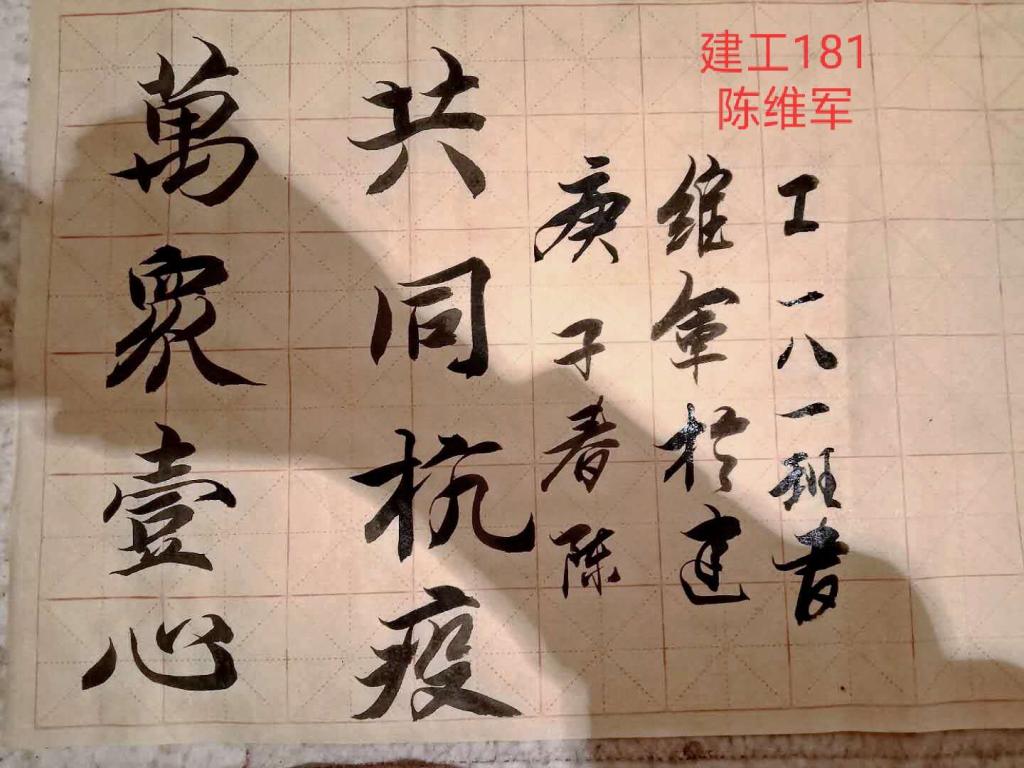 建工181
陈维军
萬眾壹心
共同抗疫
庚子春陈
维軍於建
工一八一班書